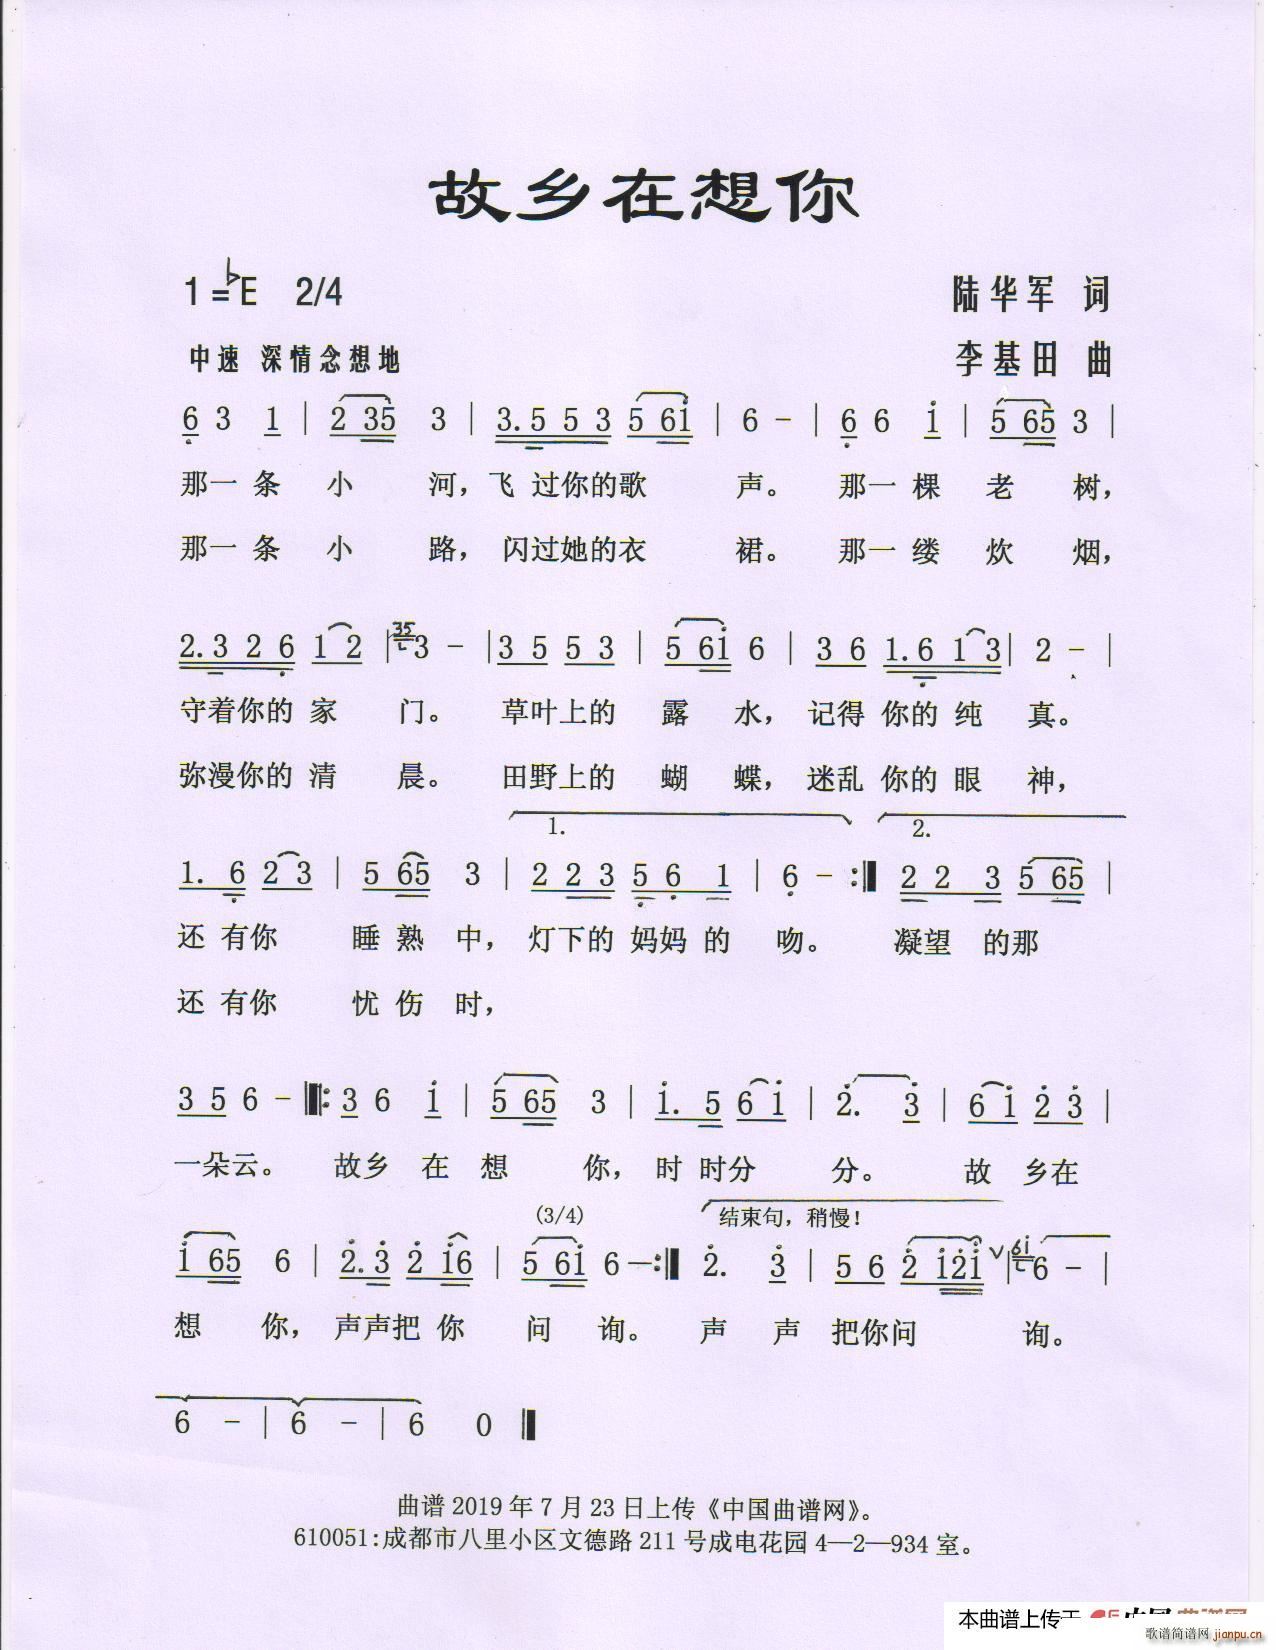 故乡在想你
1=♭E 2/4
陆华军 词
中速 深情念想地
李基田 曲
6 3 1 | 2 35 3 | 3. 5 5 3 5 6i | 6 - | 6 6 i | 5 65 3 |
那一条 小 河，飞 过你的歌 声。 那一棵 老 树，
那一条 小 路，闪过她的衣 裙。 那一缕 炊 烟，
2. 3 2 6 1 2 | 35 3 - | 3 5 5 3 | 5 6i 6 | 3 6 1. 6 1 3 | 2 - |
守着你的 家 门。 草叶上的 露 水，记得 你的 纯 真。
弥漫你的 清 晨。 田野上的 蝴 蝶，迷乱 你的 眼 神，
1. 2.
1. 6 2 3 | 5 65 3 | 2 2 3 5 6 1 | 6 - :‖ 2 2 3 5 65 |
还 有你 睡 熟 中，灯下的 妈妈 的 吻。 凝望 的那
还 有你 忧 伤 时，
3 5 6 - ‖: 3 6 i | 5 65 3 | i. 5 6 i | 2. 3 | 6 i 2 3 |
一朵云。 故乡 在 想 你，时 时分 分。 故 乡在
(3/4) 结束句，稍慢！
i 65 6 | 2. 3 2 i6 | 5 6i 6 — :‖ 2. 3 | 5 6 2 i2i ∨ | 6i 6 - |
想 你，声声把 你 问 询。 声 声 把你问 询。
6 - | 6 - | 6 0 ‖
曲谱 2019 年 7 月 23 日上传《中国曲谱网》。
610051:成都市八里小区文德路 211 号成电花园 4—2—934 室。
本曲谱上传于
歌谱简谱网 jianpu.cn